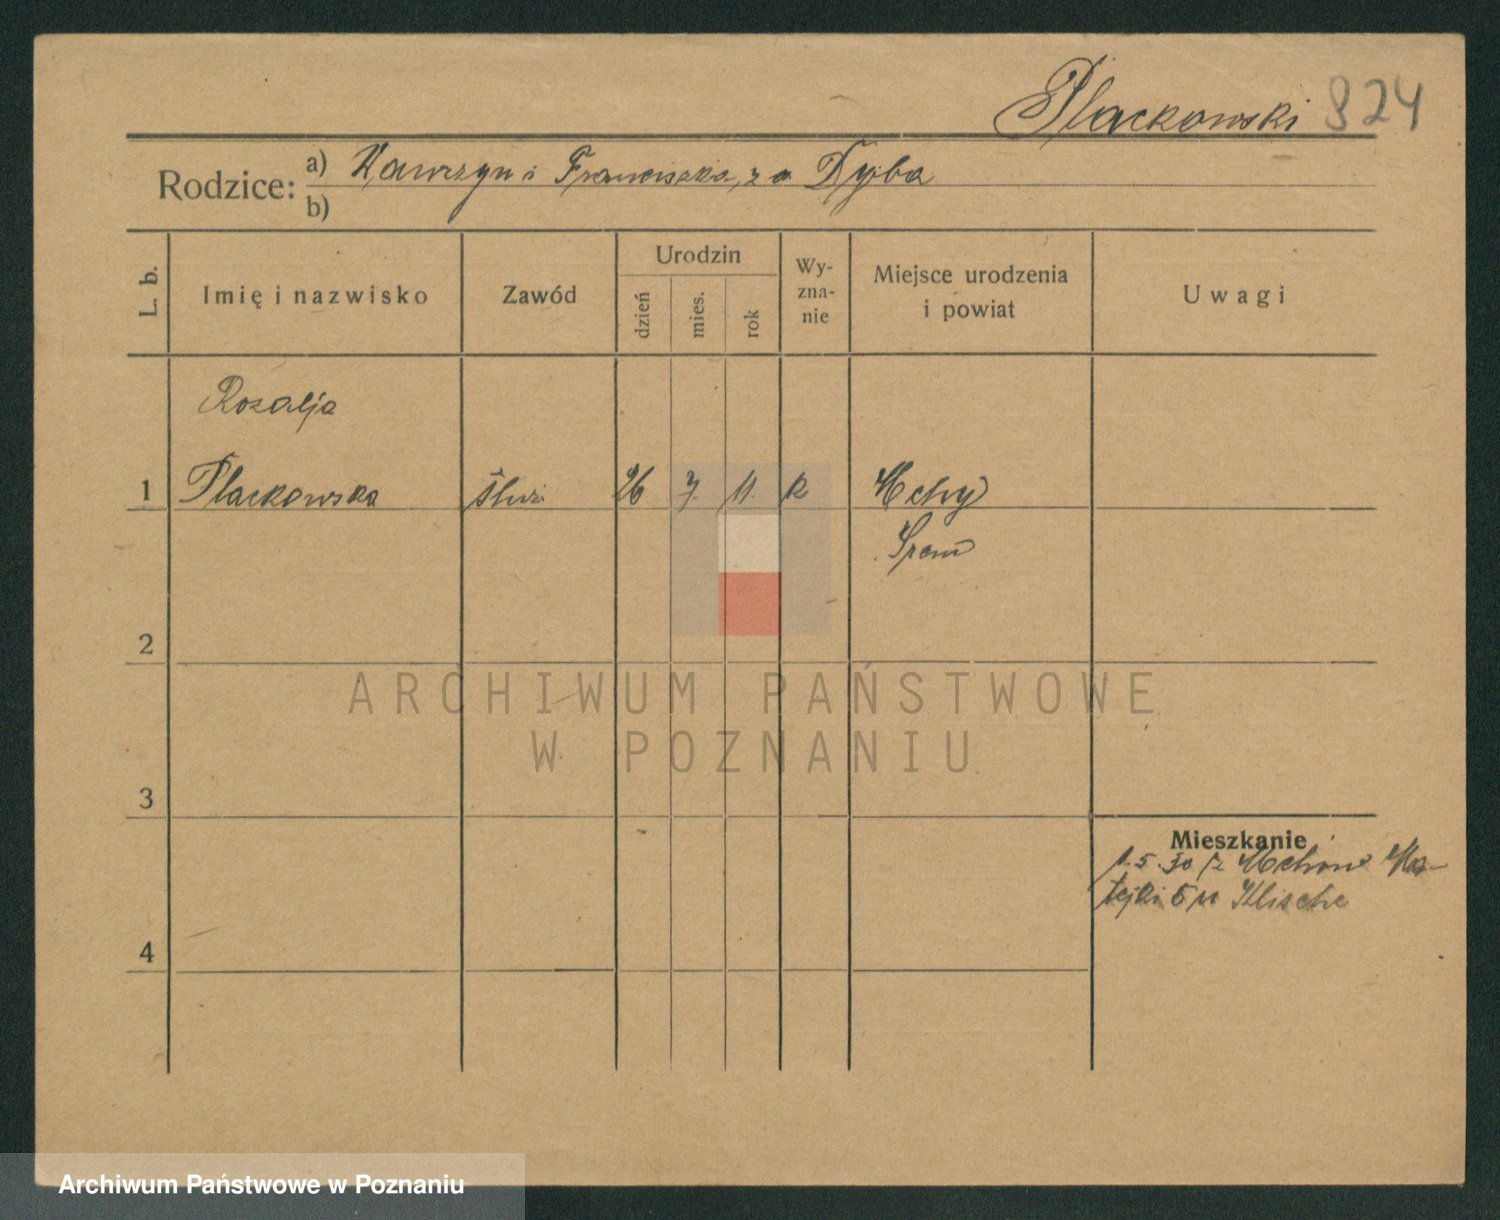 Plackowski 824
Rodzice: a) Wawrzyn i Franciszka, z d Dyba
b)
L. b.
Imię i nazwisko
Zawód
Urodzin
dzień
mies.
rok
Wy-
zna-
nie
Miejsce urodzenia
i powiat
Uwagi
Rozalja
1 Plackowska służ 26 7. 11. k Mchy
Śrem
2
3
4
Mieszkanie
1.5.30 z Mchów Ma-
tejki 5 u Klische
ARCHIWUM PAŃSTWOWE
W POZNANIU
Archiwum Państwowe w Poznaniu